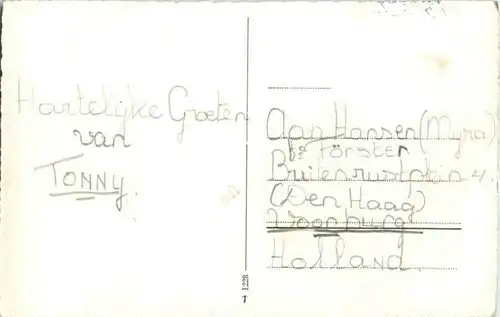 Hartelijke Groeten
van
TONNY.
Hansen (Myra)
Förster
4.
(Den Haag)
Holland.
1228
T